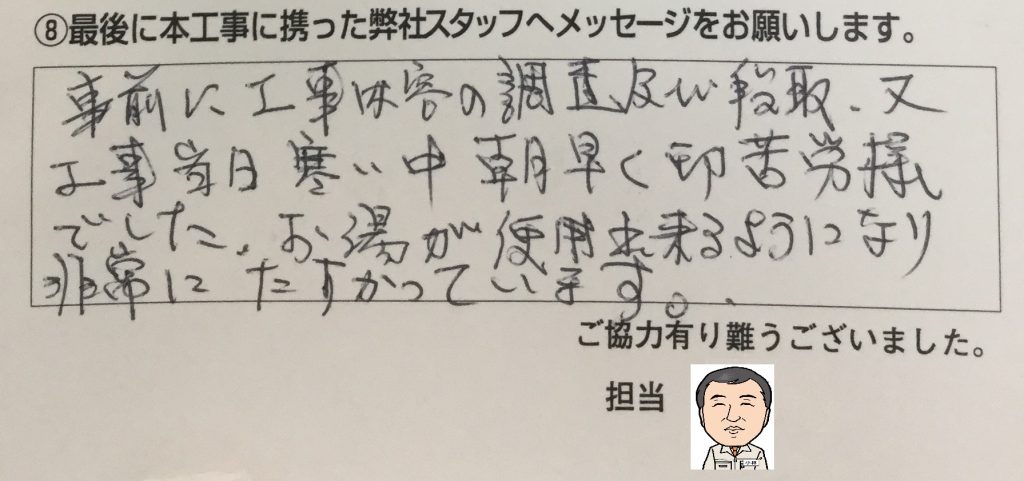 ⑧最後に本工事に携った弊社スタッフへメッセージをお願いします。
事前に工事内容の調査及び段取、又
工事当日寒い中朝早く御苦労様
でした、お湯が使用出来るようになり
非常にたすかっています。
ご協力有り難うございました。
担当